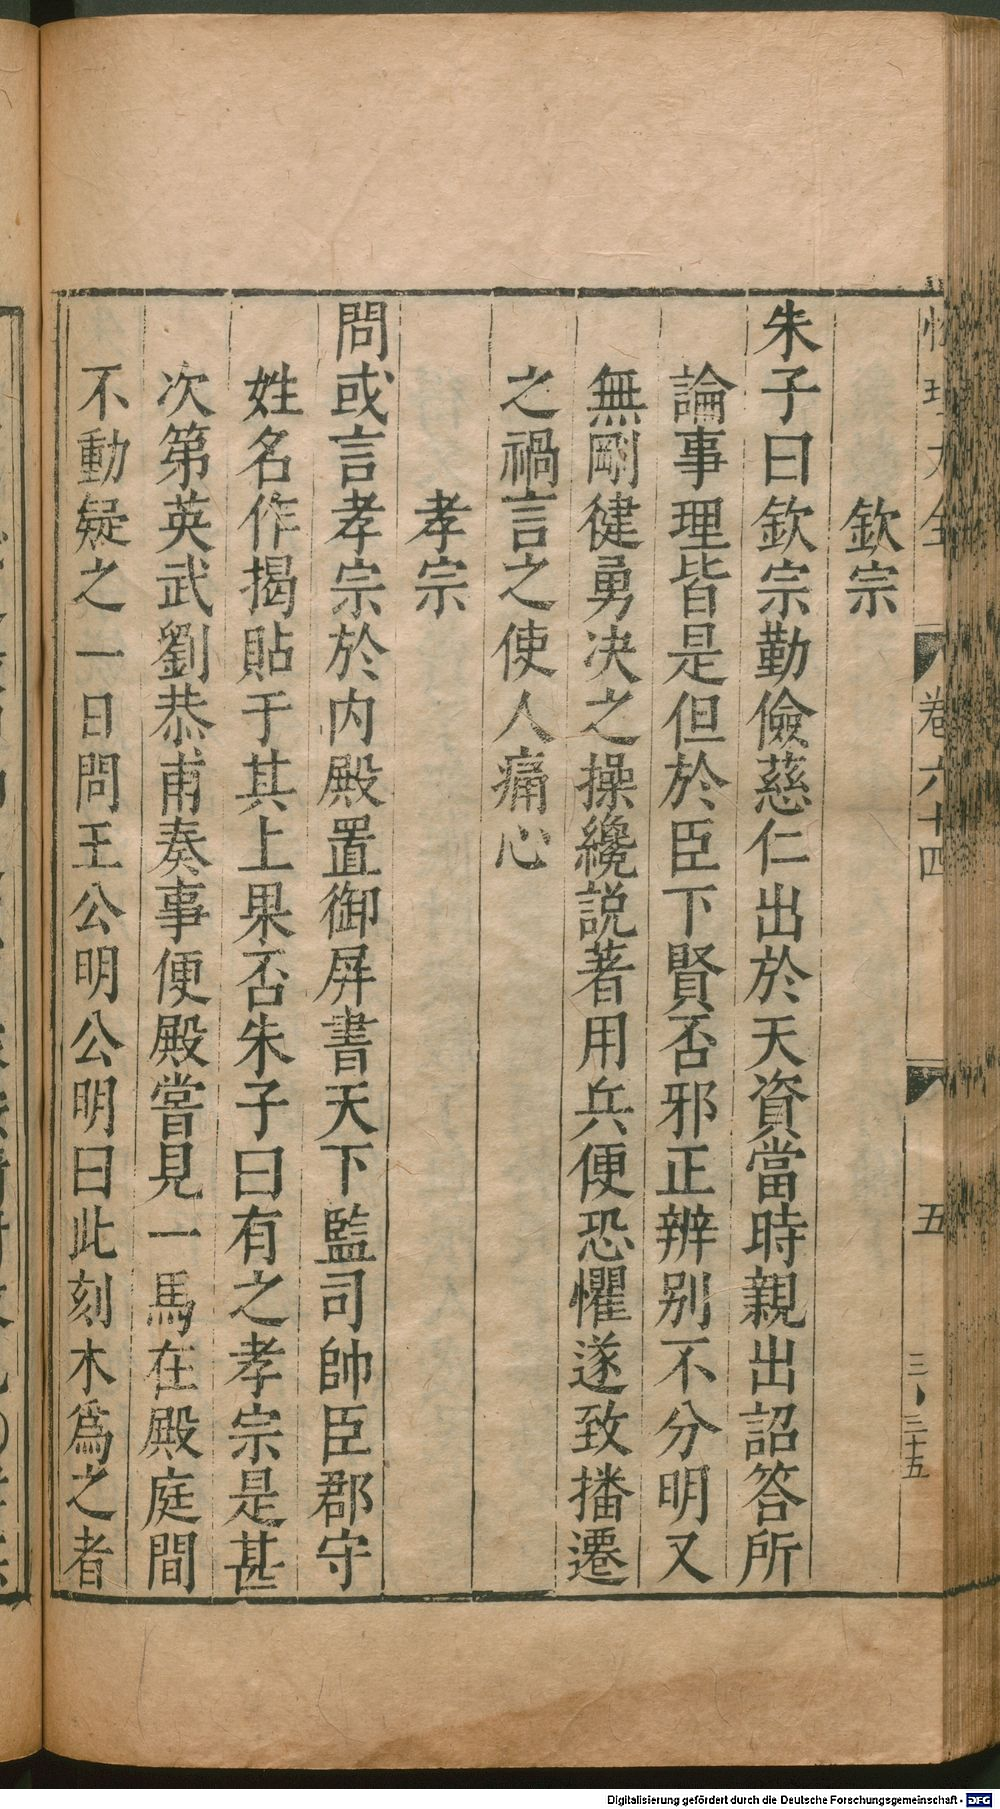 性理大全 卷六十四 五 三、三十五
欽宗
朱子曰欽宗勤儉慈仁出於天資當時親出詔答所
論事理皆是但於臣下賢否邪正辨别不分明又
無剛健勇决之操纔説著用兵便恐懼遂致播遷
之禍言之使人痛心
孝宗
問或言孝宗於内殿置御屏書天下監司帥臣郡守
姓名作揭貼于其上果否朱子曰有之孝宗是甚
次第英武劉恭甫奏事便殿嘗見一馬在殿庭間
不動疑之一日問王公明公明曰此刻木爲之者
Digitalisierung gefördert durch die Deutsche Forschungsgemeinschaft - DFG